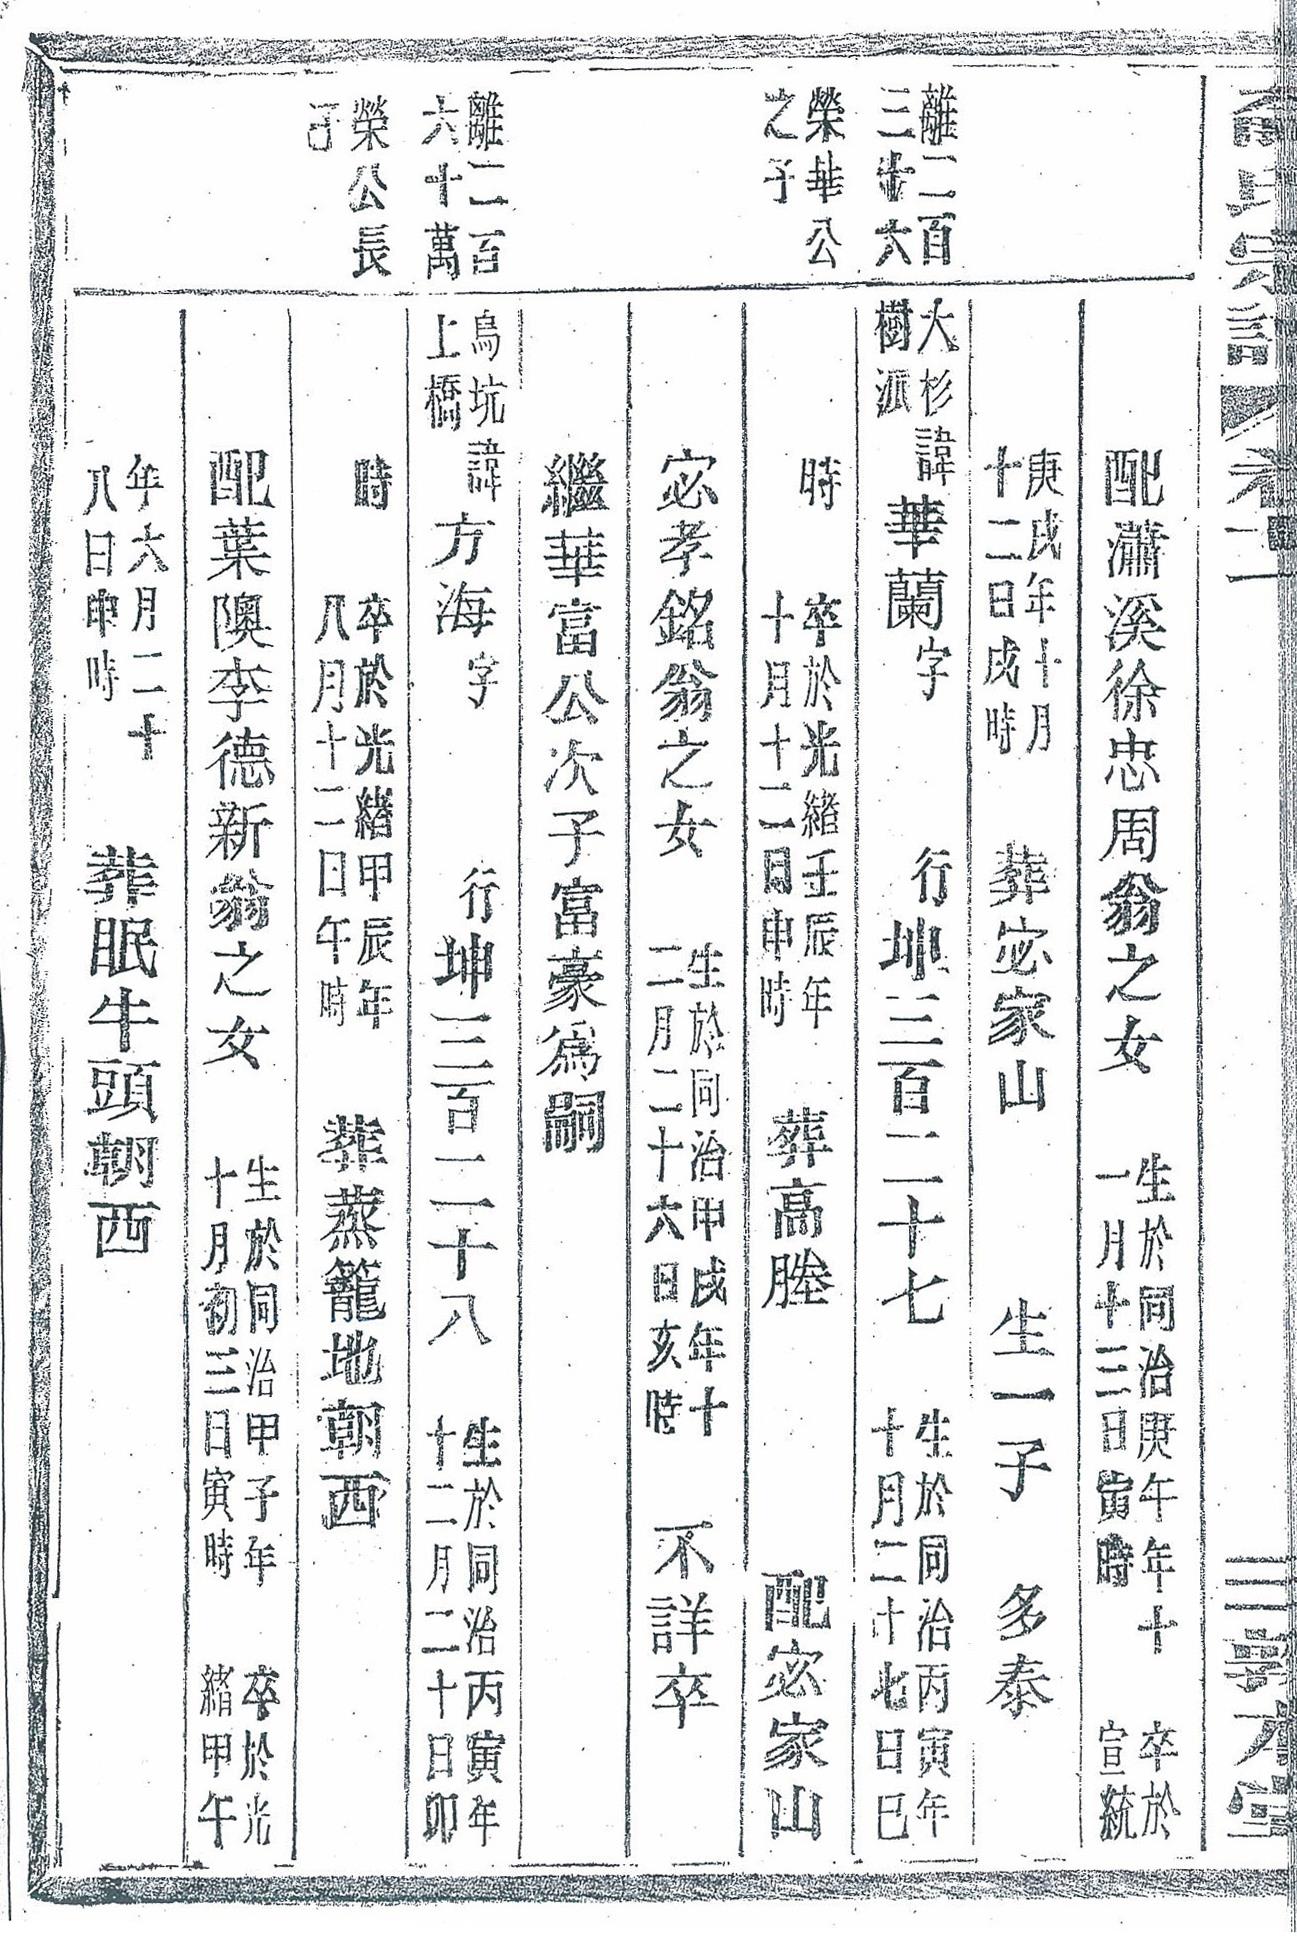 氏宗譜 卷一 三 敦本堂
配瀟溪徐忠周翁之女 生於同治庚午年十一月十三日寅時 卒於宣統
庚戌年十月十二日戌時 葬宓家山 生一子 多泰
離二百三十六
大杉樹派 諱華蘭字 行坤三百二十七 生於同治丙寅年十月二十七日巳
榮華公之子
時 卒於光緒壬辰年十月十二日申時 葬高塍 配宓家山
宓孝銘翁之女 生於同治甲戌年十二月二十六日亥時 不詳卒
繼華富公次子富豪為嗣
離二百六十萬
烏坑上橋 諱方海字 行坤三百二十八 生於同治丙寅年十二月二十日卯
榮公長子
時 卒於光緒甲辰年八月十二日午時 葬蒸籠地朝西
配葉隩李德新翁之女 生於同治甲子年十月初三日寅時 卒於光緒甲午
年六月二十八日申時 葬眠牛頭朝西